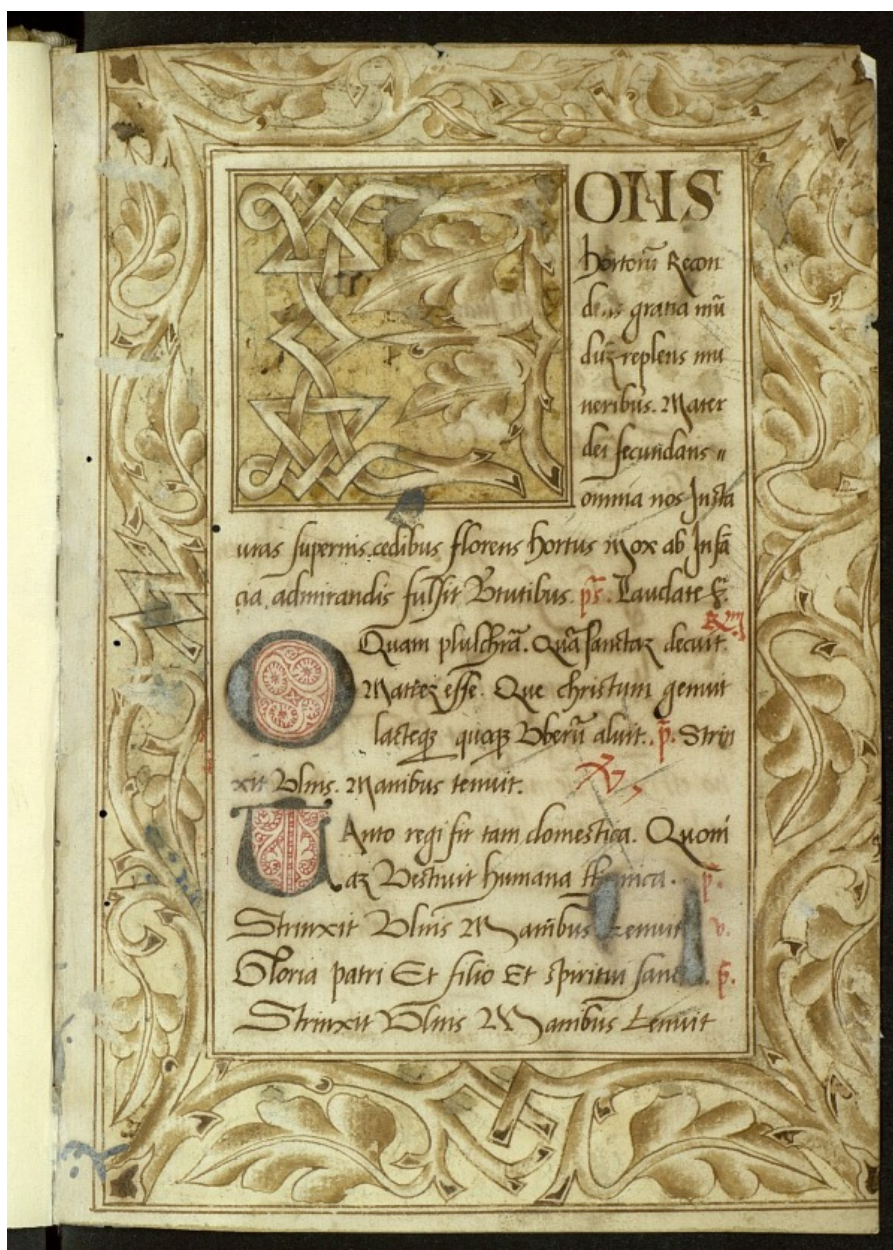 FONS
hortorū Recon
dens gratia mū
duȝ replens mu
neribus. Mater
dei fecundans
omnia nos Insta
uras supernis cedibus florens hortus mox ab Infā
cia admirandis fulsit Vtutibus. ps̄. Laudate
Quam plulchrā. Quā sanctaȝ decuit.
Matreȝ esse. Que christum genuit
lacteqȝ quoqȝ Vberū aluit. p̄. Strin
xit Vlnis. Manibus tenuit.
Tanto regi fit tam domestica. Quom
aȝ Vestiuit humana p̄.
Strinxit Vlnis Manibus tenuit v.
Gloria patri Et filio Et spiritui p̄.
Strinxit Vlnis Manibus tenuit